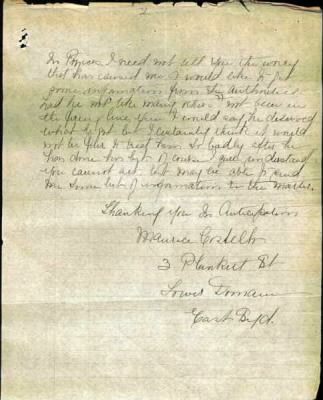 2
In Prison I need not tell you the worry
that has caused me. I would like to get
some information from the Authorities
had he not like many others not been in
the firing line then I could say he deserved
what he got but I certainly think it would
not be fair to treat him so badly after he
has done his bit of course I quite understand
you cannot act but may be able to send
me some bit of information in the matter.
Thanking You In Anticipation
Maurice Costello
3 Plunkett St
Lower Domain